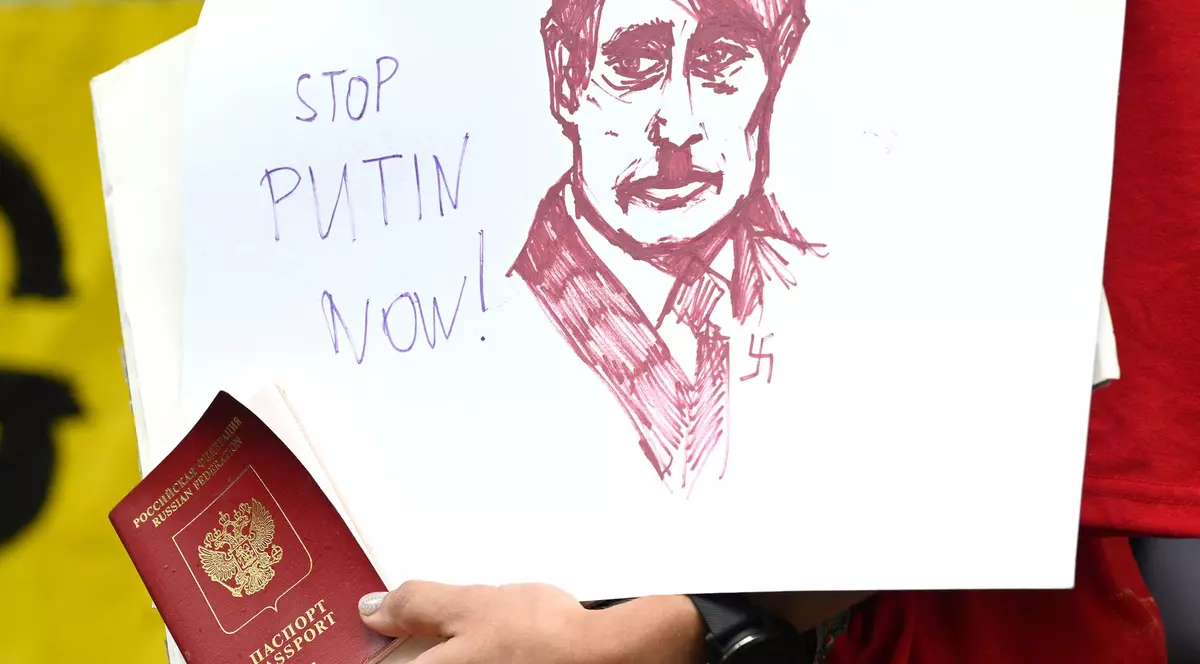 STOP
PUTIN
NOW!
РОССИЙСКАЯ ФЕДЕРАЦИЯ
RUSSIAN FEDERATION
ПАСПОРТ
PASSPORT